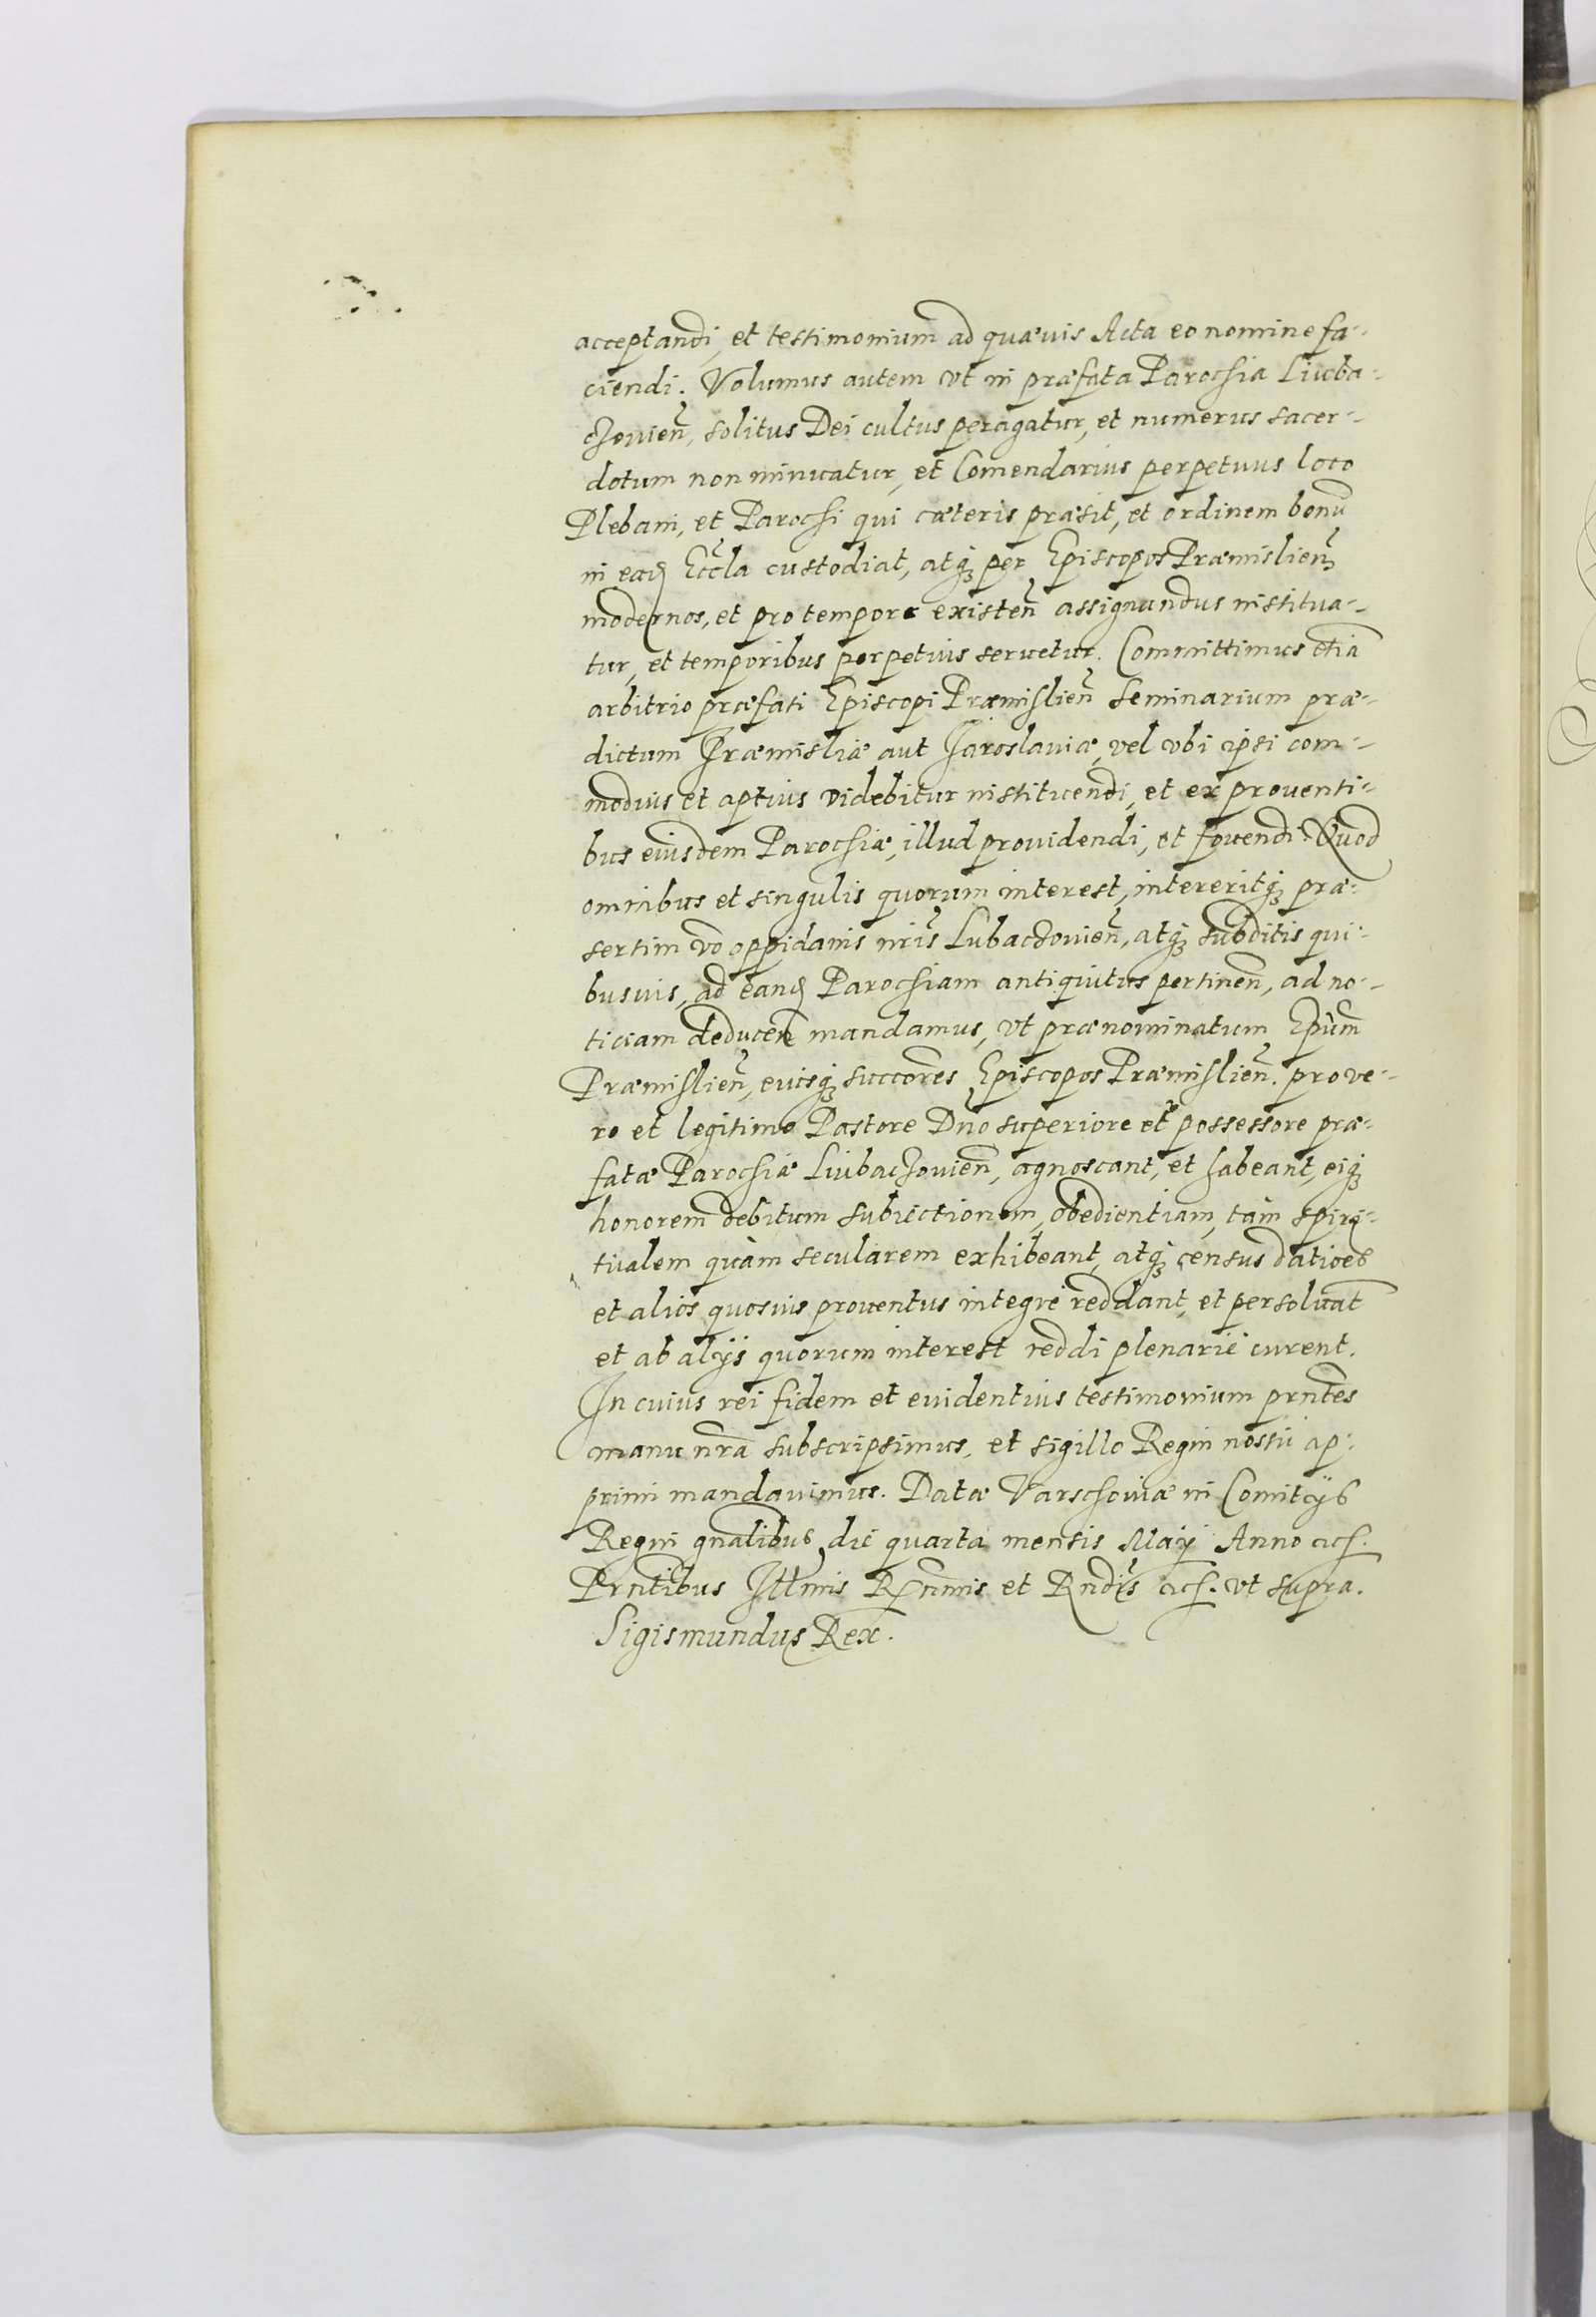 acceptandi, et testimonium ad quævis Acta eo nomine fa-
ciendi. Volumus autem vt in præfata Parochia Liuba-
chouień, solitus Dei cultus peragatur, et numerus sacer-
dotum non minuatur, et Comendarius perpetuus loco
Plebani, et Parochi qui cæteris præsit, et ordinem bonū
in eađ Eccła custodiat, atq̨ per Episcopos Præmislień
modernos, et pro tempore existeń assignandus institua-
tur, et temporibus perpetuis seruetur. Committimus etiā
arbitrio præfati Episcopi Præmislień Seminarium præ-
dictum Præmisliæ aut Jaroslauiæ, vel vbi ipsi com-
modius et aptius videbitur instituendi, et ex prouenti-
bus eiusdem Parochiæ, illud prouidendi, et fouendi. Quod
omnibus et singulis quorum interest, intereritq̨ præ-
sertim vō oppidanis nr̄is Lubachouień, atq̨ subditis qui-
busuis, ad eanđ Parochiam antiquitus pertineń, ad no-
ticiam deduceń mandamus, vt prænominatum Ep̄um
Præmislień, eiusq̨ succōres Episcopos Præmislień. pro ve-
ro et legitimo Pastore Dn̄o superiore et possessore præ-
fatæ Parochiæ Liubachouień, agnoscant, et habeant, eiq̨
honorem debitum subiectionem, obedientiam, tàm spiri-
tualem quàm secularem exhibeant, atq̨ census datioēs
et alios quosuis prouentus integrè reddant, et persoluāt
et ab alijs quorum interest reddi plenariè curent.
In cuius rei fidem et euidentius testimonium prn̄tes
manu nr̄a subscripsimus, et sigillo Regni nostri ap-
primi mandauimus. Datæ Varschouiæ in Comitijs
Regni gn̄alibus, die quarta mensis Maij Anno ach.
Prn̄tibus Illmis Rn̄mis et Rn̄dis ach. vt supra.
Sigismundus Rex.